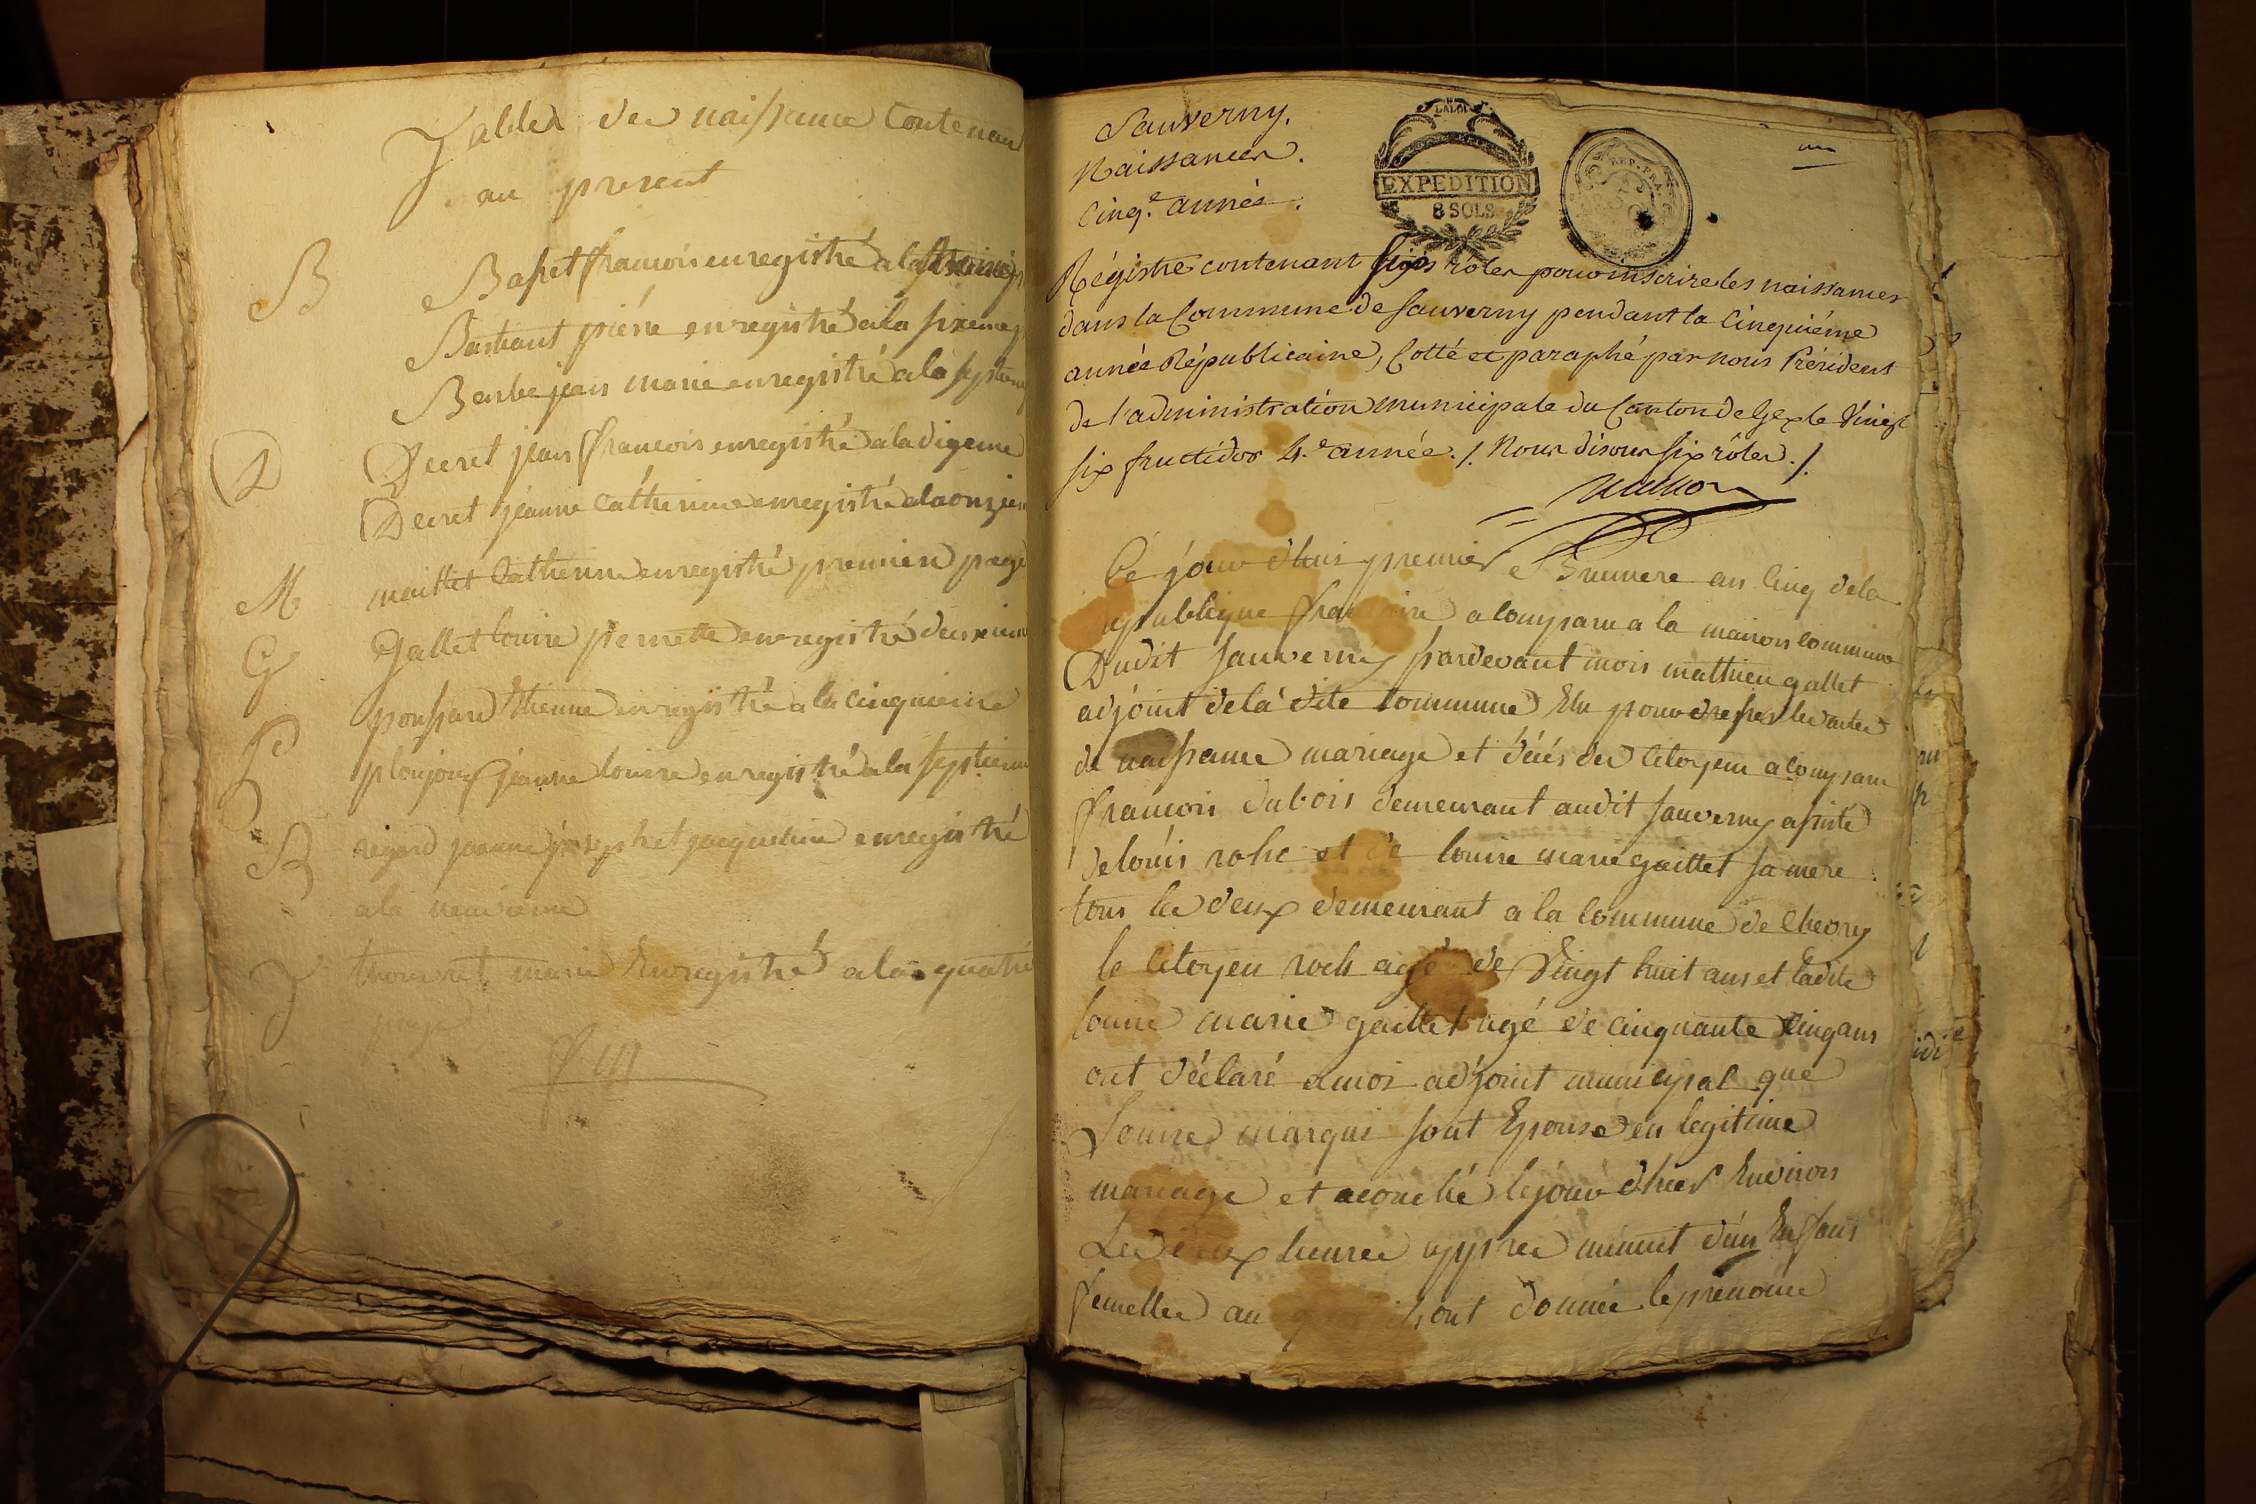 Tables des naissance Contenant
au present
B
Basset francois enregistré a la
Bastiant piére enregistré a la sixeme
Barbe jean marie enregistré a la septieme
D
Decret jean francois enregistré a la digeme
Decret jeanne Catherine enregistré a la onzieme
M
maillet Catherine enregistré premiere page
G
Gallet louise pernette enregistré deuxieme
P
poussard Etienne enregistré a la cinquieme
plonjoux jeanne louise enregistré a la septieme
R
regard jeanne joseph et jacqueline enregistré
a la neuvieme
T
thouvret marie Enregistré a la quatrié
page
fin
Sauverny.
Naissances.
Cinq.e année.
un
LA LOI
EXPEDITION
8 SOLS
REP. FRA.
Régistre contenant six rôles pour inscrire les naissances
dans la Commune de Sauverny pendant la Cinquiéme
année Républicaine, Cotté et paraphé par nous Président
de l'administration municipale du Canton de Gex le Vingt
six fructidor 4.e année./. Nous disons six rôles./.
Cé jour d'huis premier Brumere an Cinq de la
republique francaire a Comparu a la maison commune
Dudit Sauverny pardevant mois mathieu gallet
adjoint de la dite Commune Elu pour dresser les actes
de naissance mariage et décés des Citoyens a Comparu
francois dubois demeurant audit Sauverny assisté
de louis rohc et de louise marie gaillet sa mere
tous les deux demeurant a la Commune de Chevry
le Citoyen roch agé de Vingt huit ans et ladite
louise marie gaillet agé de cinquante Cinq ans
ont déclaré a moi adjoint municipal que
Louise marqui sont Epouse en legitime
mariage et acouché le jour d'hier Environ
Les deux heures appres minuit d'un Enfans
femelles au ont donnée le prénome